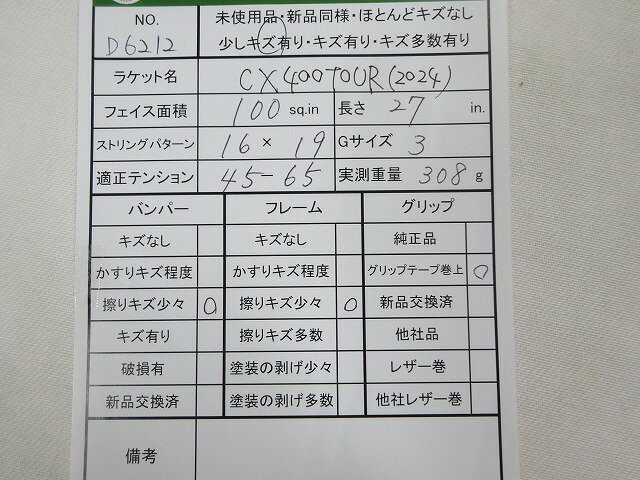 NO. 未使用品・新品同様・ほとんどキズなし
D6212 少しキズ有り・キズ有り・キズ多数有り
ラケット名 CX400TOUR(2024)
フェイス面積 100 sq.in 長さ 27 in.
ストリングパターン 16 × 19 Gサイズ 3
適正テンション 45-65 実測重量 308 g
バンパー フレーム グリップ
キズなし キズなし 純正品
かすりキズ程度 かすりキズ程度 グリップテープ巻上 ○
擦りキズ少々 ○ 擦りキズ少々 ○ 新品交換済
キズ有り 擦りキズ多数 他社品
破損有 塗装の剥げ少々 レザー巻
新品交換済 塗装の剥げ多数 他社レザー巻
備考